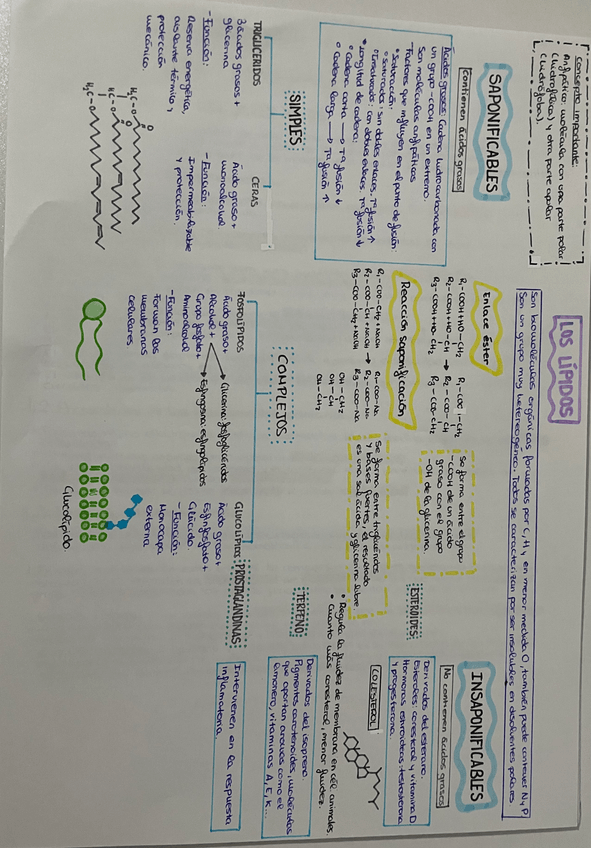 LOS LÍPIDOS
Son biomoléculas orgánicas formadas por C, H y, en menor medida O, también puede contener N y P
Son un grupo muy heterogéneo. Todos se caracterizan por ser insolubles en disolventes polares
Concepto importante:
Anfipático: molécula con una parte polar
(hidrofílica) y otra parte apolar
(hidrófoba).
SAPONIFICABLES
Contienen ácidos grasos
Ácidos grasos: Cadena hidrocarbonada con
un grupo -COOH en un extremo.
Son moléculas anfipáticas
Factores que influyen en el punto de fusión
Saturación:
saturados: sin dobles enlaces, Tª fusión ↑
Insaturados: con dobles enlaces Tª fusión ↓
Longitud de cadena:
cadena corta → Tª fusión ↓
cadena larga → Tª fusión ↑
Enlace éster
R₁-COOH+HO-CH₂
R₂-COOH+HO-CH →
R₃-COOH+HO-CH₂
R₁-COO-CH₂
R₂-COO-CH
R₃-COO-CH₂
Se forma entre el grupo
-COOH de un ácido
graso con el grupo
-OH de la glicerina.
Reacción saponificación
R₁-COO-CH₂+NaOH
R₂-COO-CH+NaOH →
R₃-COO-CH₂+NaOH
R₁-COO-Na
R₂-COO-Na
R₃-COO-Na
OH-CH₂
OH-CH
OH-CH₂
Se forma entre triglicéridos
y bases fuertes, el resultado
es una sal ácida y glicerina libre.
SIMPLES
TRIGLICÉRIDOS
3 ácidos grasos +
glicerina
-Función:
Reserva energética,
aislante térmico y
protección
mecánica.
H₂C-O
HC-O
H₂C-O
O
O
CERAS
Ácido graso +
monoalcohol
-Función:
Impermeabilizable
y protección.
COMPLEJOS
FOSFOLÍPIDOS
Ácido graso +
Alcohol +
Grupo fosfato +
Aminoalcohol
-Función:
Forman las
membranas
celulares
Glicerina: fosfoglicéridos
Esfingosina: esfingolípidos
GLUCOLÍPIDOS
Ácido graso +
Esfinfosfato +
Glúcido
-Función:
Monocapa
externa
Glucolípido
INSAPONIFICABLES
No contienen ácidos grasos
ESTEROIDES
Derivados del esterano.
Esteroles: coresterol y vitamina D
Hormonas esteroideas: testosterona
y progesterona.
COLESTEROL
Regula la fluidez de membrana en cél animales.
Cuanto más coresterol, menor fluidez.
TERPENO
Derivados del isopreno
Pigmentos carotenoides, moléculas
que aportan aromas como el
limoneno, vitaminas A, E, K...
PROSTAGLANDINAS
Intervienen en la respuesta
inflamatoria.